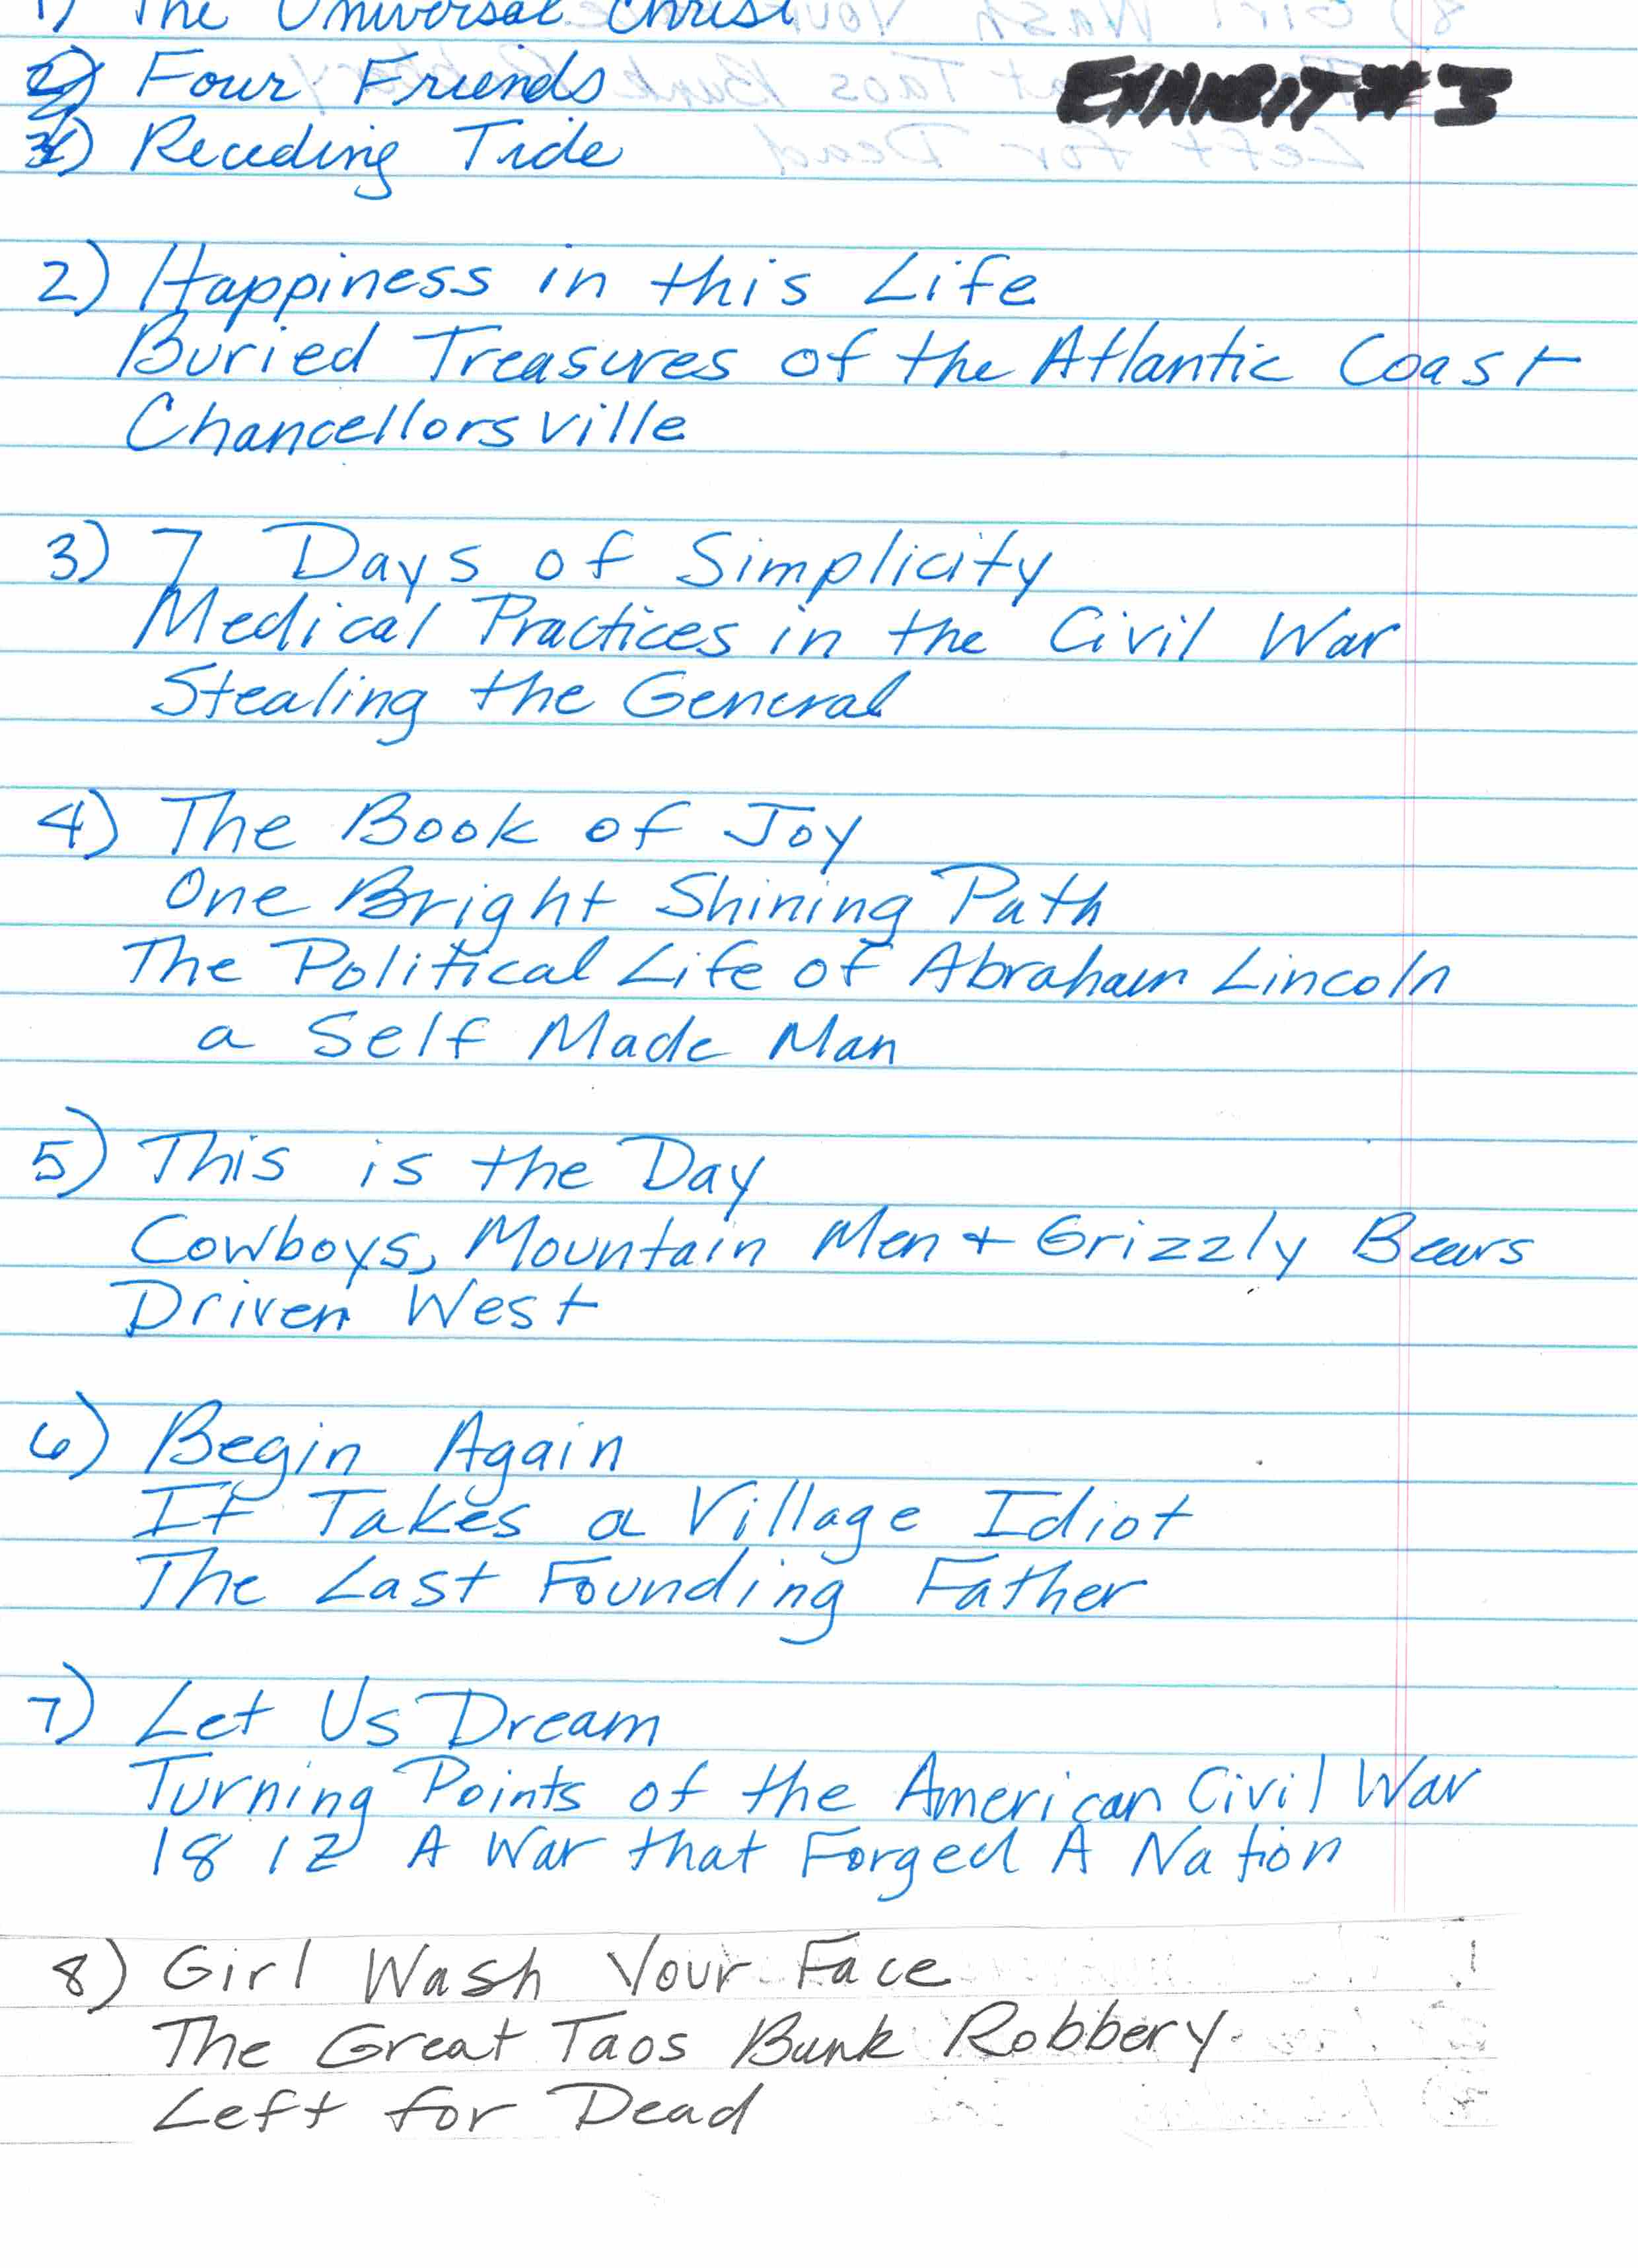 1) The Universal Christ
2) Four Friends
EXHIBIT #3
3) Receding Tide
2) Happiness in this Life
Buried Treasures of the Atlantic Coast
Chancellorsville
3) 7 Days of Simplicity
Medical Practices in the Civil War
Stealing the General
4) The Book of Joy
One Bright Shining Path
The Political Life of Abraham Lincoln
a Self Made Man
5) This is the Day
Cowboys, Mountain Men + Grizzly Bears
Driven West
6) Begin Again
It Takes a Village Idiot
The Last Founding Father
7) Let Us Dream
Turning Points of the American Civil War
1812 A War that Forged A Nation
8) Girl Wash Your Face
The Great Taos Bank Robbery
Left for Dead